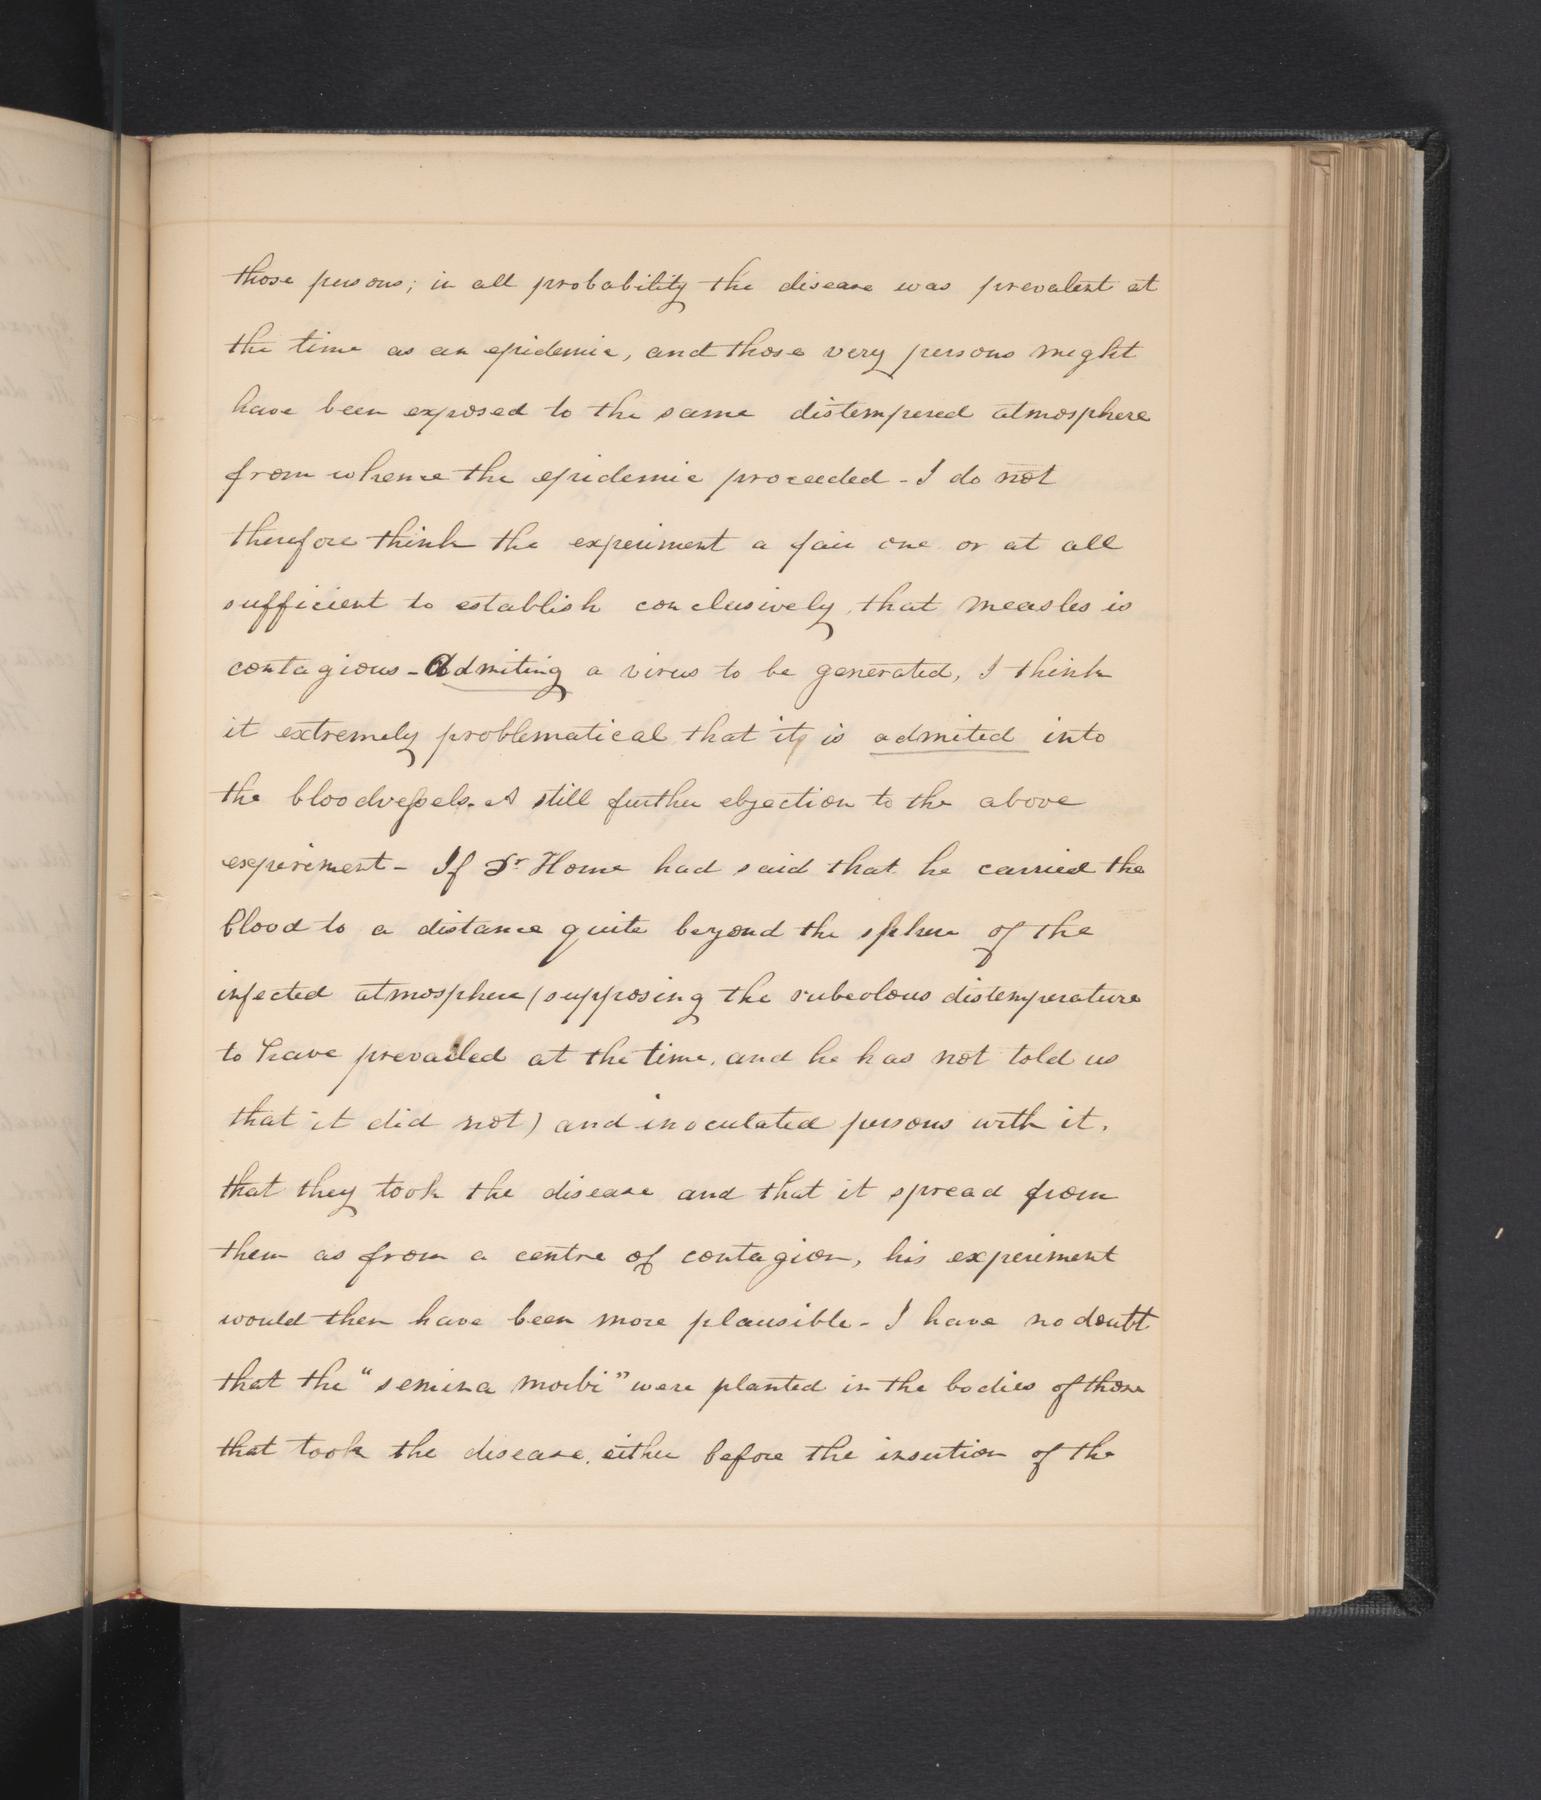 those persons; in all probability the disease was prevalent at
the time as an epidemic, and those very persons might
have been exposed to the same distempered atmosphere
from whence the epidemic proceeded - I do not
therefore think the experiment a fair one or at all
sufficient to establish conclusively, that measles is
contagious - Admiting a virus to be generated, I think
it extremely problematical that it is admited into
the bloodvessels. A still further objection to the above
experiment - If Dr Home had said that he carried the
blood to a distance quite beyond the sphere of the
infected atmosphere (supposing the rubeolous distemperature
to have prevailed at the time, and he has not told us
that it did not) and inoculated persons with it,
that they took the disease and that it spread from
them as from a centre of contagion, his experiment
would then have been more plausible - I have no doubt
that the "semina morbi" were planted in the bodies of those
that took the disease, either before the insertion of the